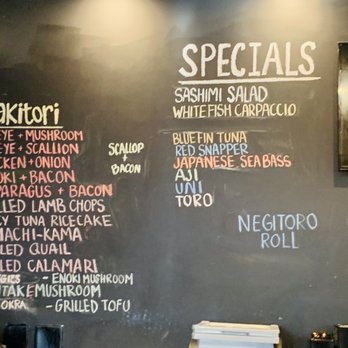 akitori
EYE + MUSHROOM
EYE + SCALLION
CKEN + ONION
OKI + BACON
PARAGUS + BACON
LLED LAMB CHOPS
CY TUNA RICE CAKE
MACHI-KAMA
LLED QUAIL
LLED CALAMARI
GIES - ENOKI MUSHROOM
IITAKE MUSHROOM
OKRA - GRILLED TOFU
SCALLOP
+
BACON
SPECIALS
SASHIMI SALAD
WHITEFISH CARPACCIO
BLUEFIN TUNA
RED SNAPPER
JAPANESE SEA BASS
AJI
UNI
TORO
NEGITORO
ROLL